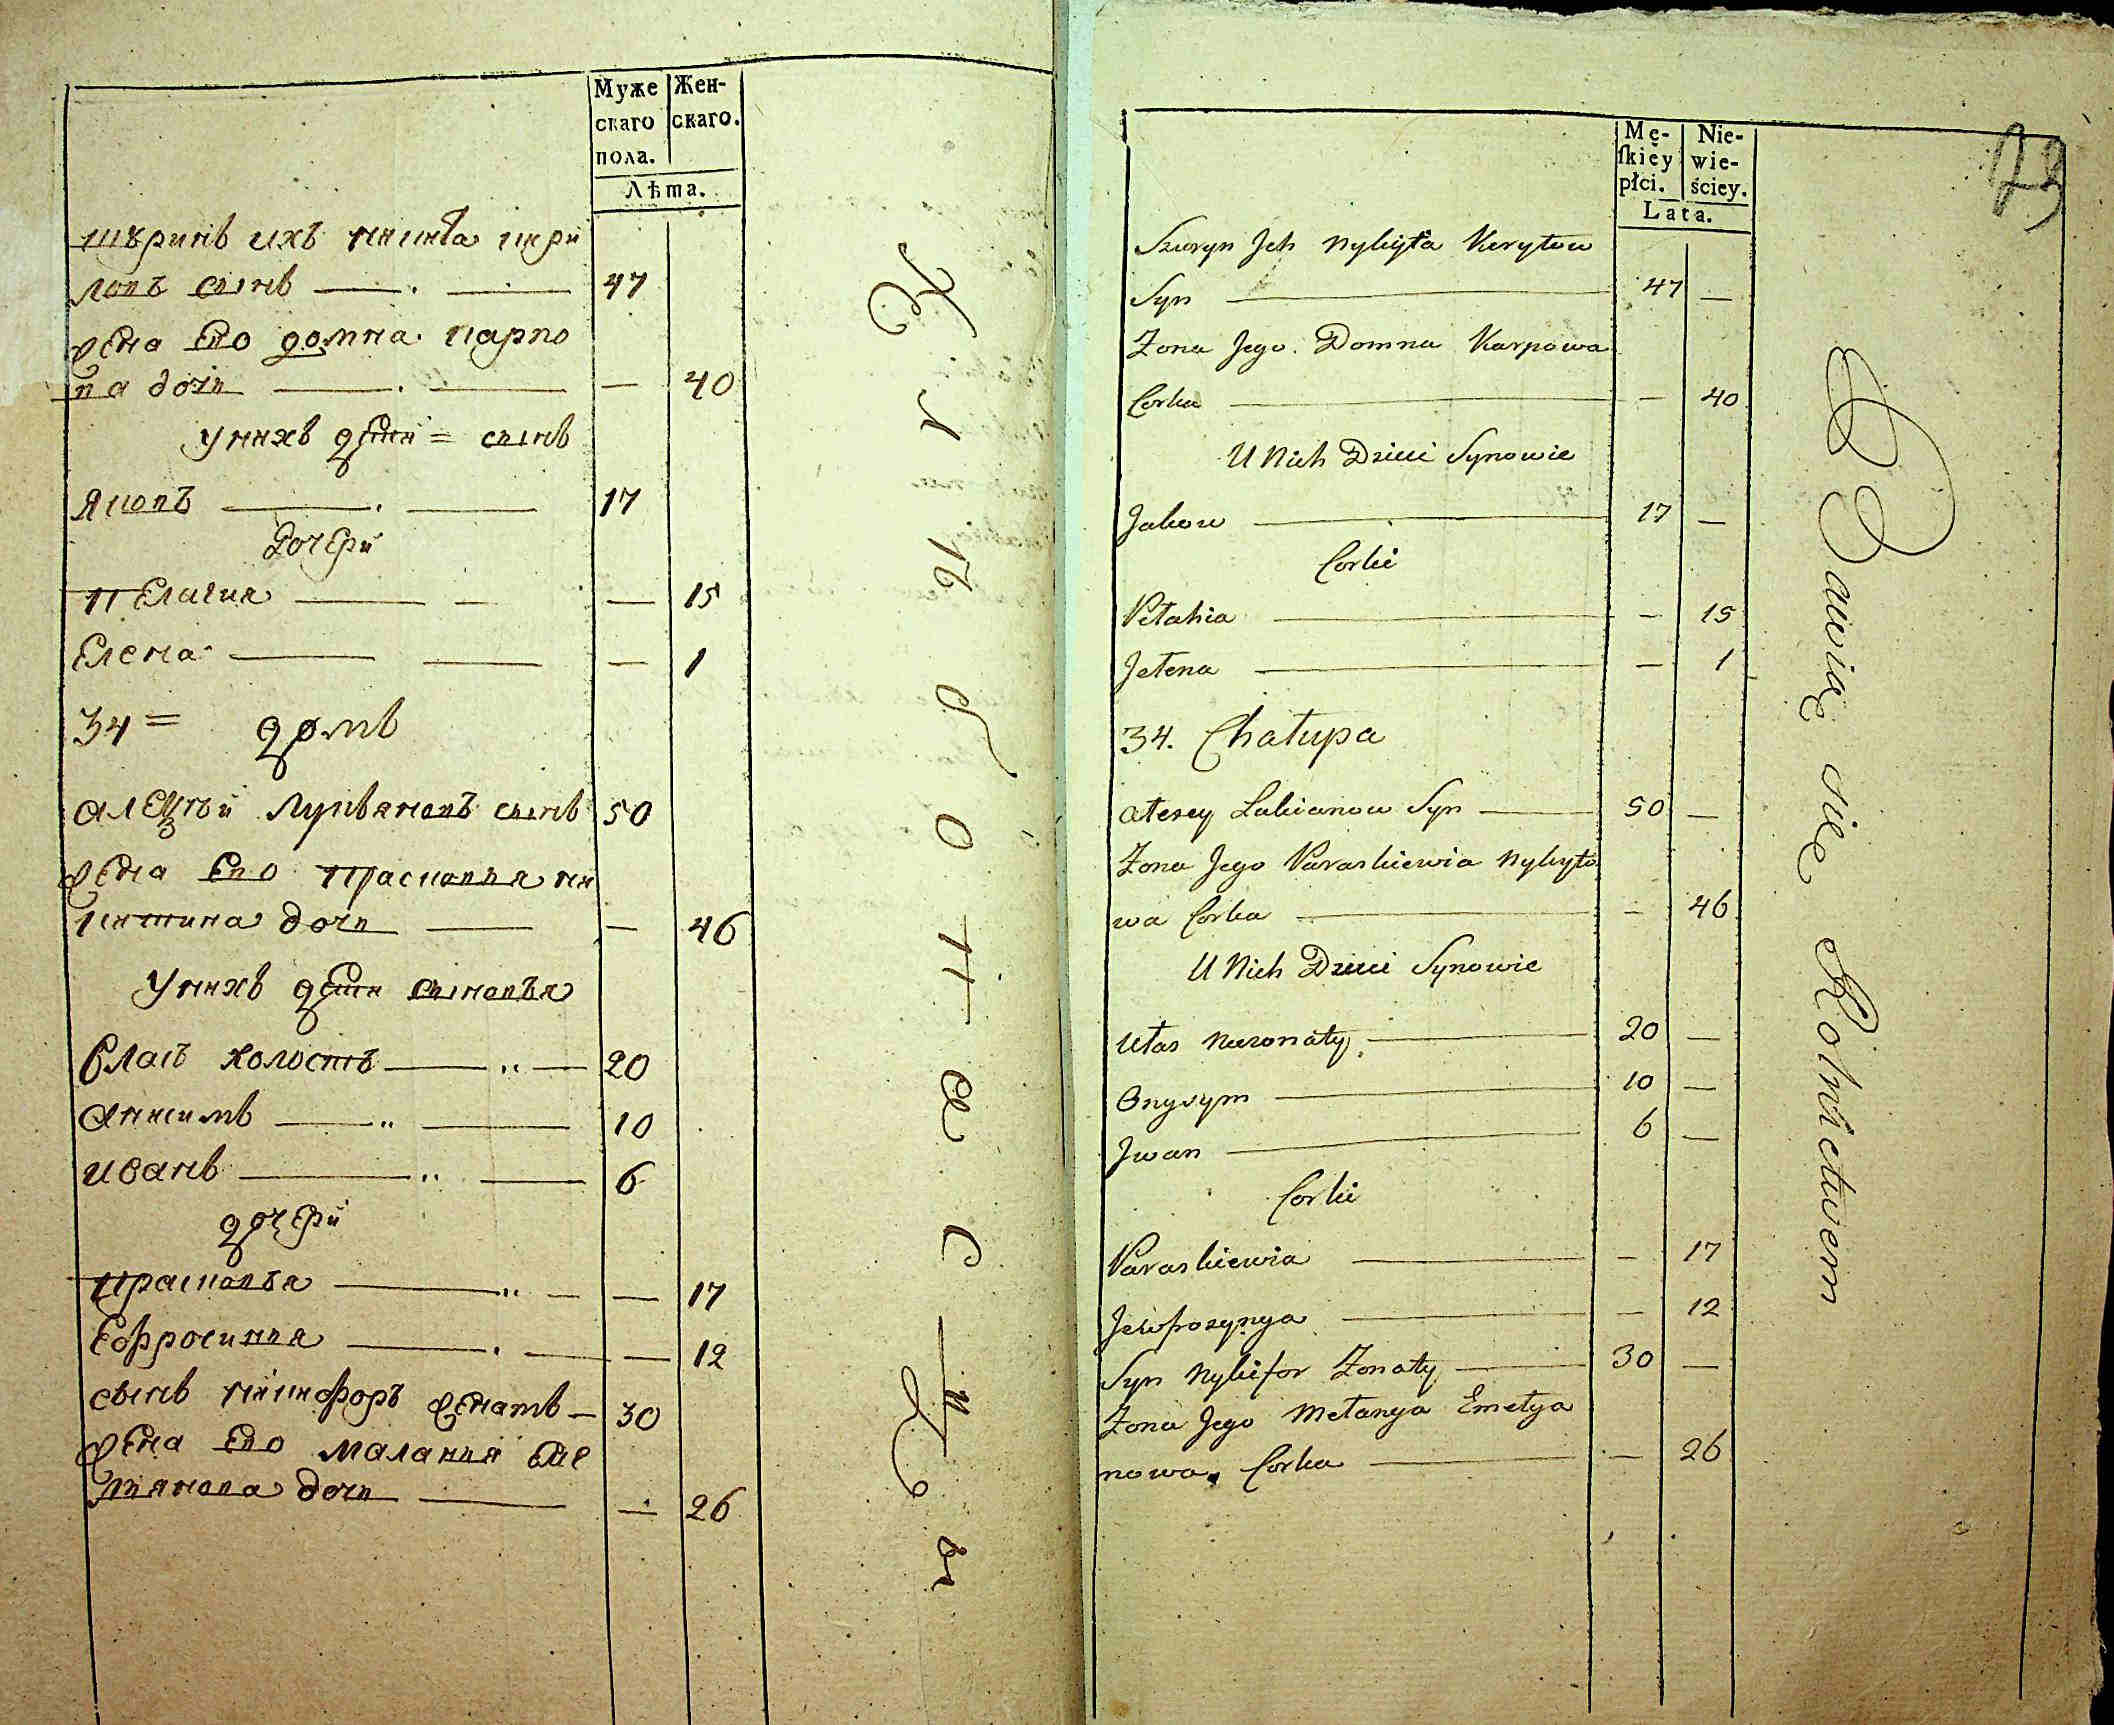 Муже
скаго
пола.
Жен-
скаго.
Лѣта.
шуринъ ихъ никита кири
ловъ сынъ 47
жена Его домна карпо
ва дочь — 40
У нихъ дети = сынъ
яковъ 17
дочери
пЕлагия — 15
Елена — 1
34 = домъ
алеѯѣй лукьяновъ сынъ 50
жена Его Прасковья ни
китина дочь — 46
У нихъ дети сыновья
Власъ холостъ 20
Анисимъ 10
иванъ 6
дочери
прасковья — 17
Ефросинья — 12
сынъ никифоръ женатъ — 30
жена Его маланья Еме
льянова дочь — 26
Хлѣбопашцы
173
Mę-
skiéy
płci.
Nie-
wie-
ściey.
Lata.
Szuryn Jch Nykyta Kerytow
Syn 47 —
Zona Jego. Domna Karpowa
Corka — 40
U Nich Dzieci Synowie
Jakow 17 —
Corki
Pełahia — 15
Jełena — 1
34. Chałupa
Ałexey Lukianow Syn 50 —
Zona Jego Paraskiewia Nykyto
wa Corka — 46
U Nich Dzieci Synowie
Ułas Niezonaty 20 —
Onysym 10 —
Jwan 6 —
Corki
Paraskiewia — 17
Jewfrozynya — 12
Syn Nykifor Zonaty 30 —
Zona Jego Mełanya Emelya
nowa Corka — 26
Bawią się Rolnictwem